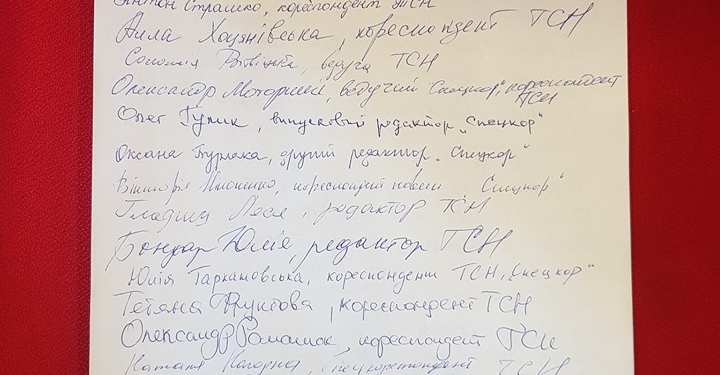 Антон Страшко, кореспондент ТСН
Алла Хоцянівська, кореспондент ТСН
Соломія Вітвіцька, ведуча ТСН
Олександр Моторний, ведучий "Спецкор", кореспондент
ТСН
Олег Гулик, випусковий редактор „Спецкор"
Оксана другий редактор „Спецкор"
Вікторія кореспондент новин „Спецкор"
Гладиш Леся, редактор ТСН
Бондар Юлія, редактор ТСН
Юлія Таркановська, кореспондент ТСН, „Спецкор"
Тетяна кореспондент ТСН
Олександр Романюк, кореспондент ТСН
Наталя Нагорна, спецкореспондент ТСН